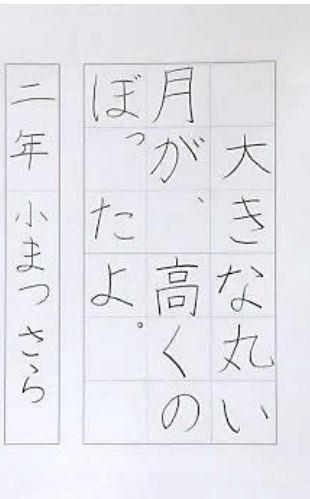 大きな丸い
月が、高くの
ぼったよ。
二年 小まつさら